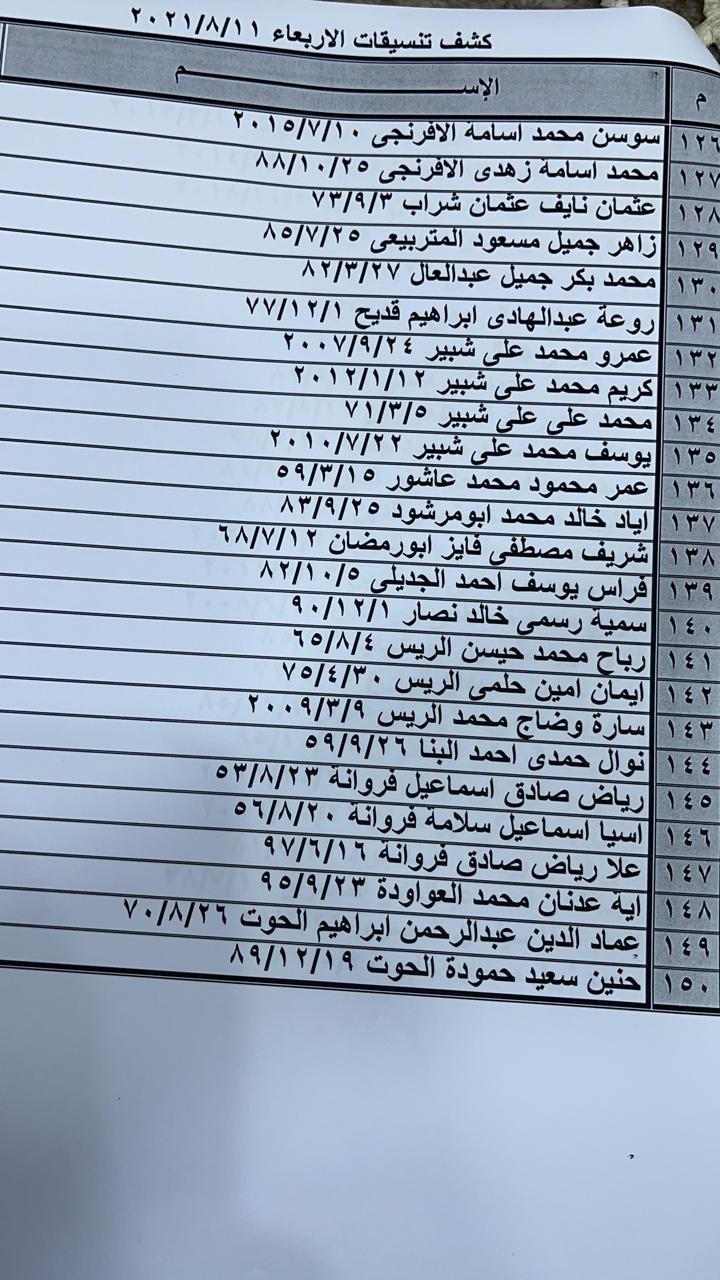 كشف تنسيقات الاربعاء ٢٠٢١/٨/١١
م الإســـــــــم
١٢٦ سوسن محمد اسامة الافرنجى ٢٠١٥/٧/١٠
١٢٧ محمد اسامة زهدى الافرنجى ٨٨/١٠/٢٥
١٢٨ عثمان نايف عثمان شراب ٧٣/٩/٣
١٢٩ زاهر جميل مسعود المتربيعى ٨٥/٧/٢٥
١٣٠ محمد بكر جميل عبدالعال ٨٢/٣/٢٧
١٣١ روعة عبدالهادى ابراهيم قديح ٧٧/١٢/١
١٣٢ عمرو محمد على شبير ٢٠٠٧/٩/٢٤
١٣٣ كريم محمد على شبير ٢٠١٢/١/١٢
١٣٤ محمد على على شبير ٧١/٣/٥
١٣٥ يوسف محمد على شبير ٢٠١٠/٧/٢٢
١٣٦ عمر محمود محمد عاشور ٥٩/٣/١٥
١٣٧ اياد خالد محمد ابومرشود ٨٣/٩/٢٥
١٣٨ شريف مصطفى فايز ابورمضان ٦٨/٧/١٢
١٣٩ فراس يوسف احمد الجديلى ٨٢/١٠/٥
١٤٠ سمية رسمى خالد نصار ٩٠/١٢/١
١٤١ رباح محمد حيسن الريس ٦٥/٨/٤
١٤٢ ايمان امين حلمى الريس ٧٥/٤/٣٠
١٤٣ سارة وضاج محمد الريس ٢٠٠٩/٣/٩
١٤٤ نوال حمدى احمد البنا ٥٩/٩/٢٦
١٤٥ رياض صادق اسماعيل فروانة ٥٣/٨/٢٣
١٤٦ اسيا اسماعيل سلامة فروانة ٥٦/٨/٢٠
١٤٧ علا رياض صادق فروانة ٩٧/٦/١٦
١٤٨ اية عدنان محمد العواودة ٩٥/٩/٢٣
١٤٩ عماد الدين عبدالرحمن ابراهيم الحوت ٧٠/٨/٢٦
١٥٠ حنين سعيد حمودة الحوت ٨٩/١٢/١٩